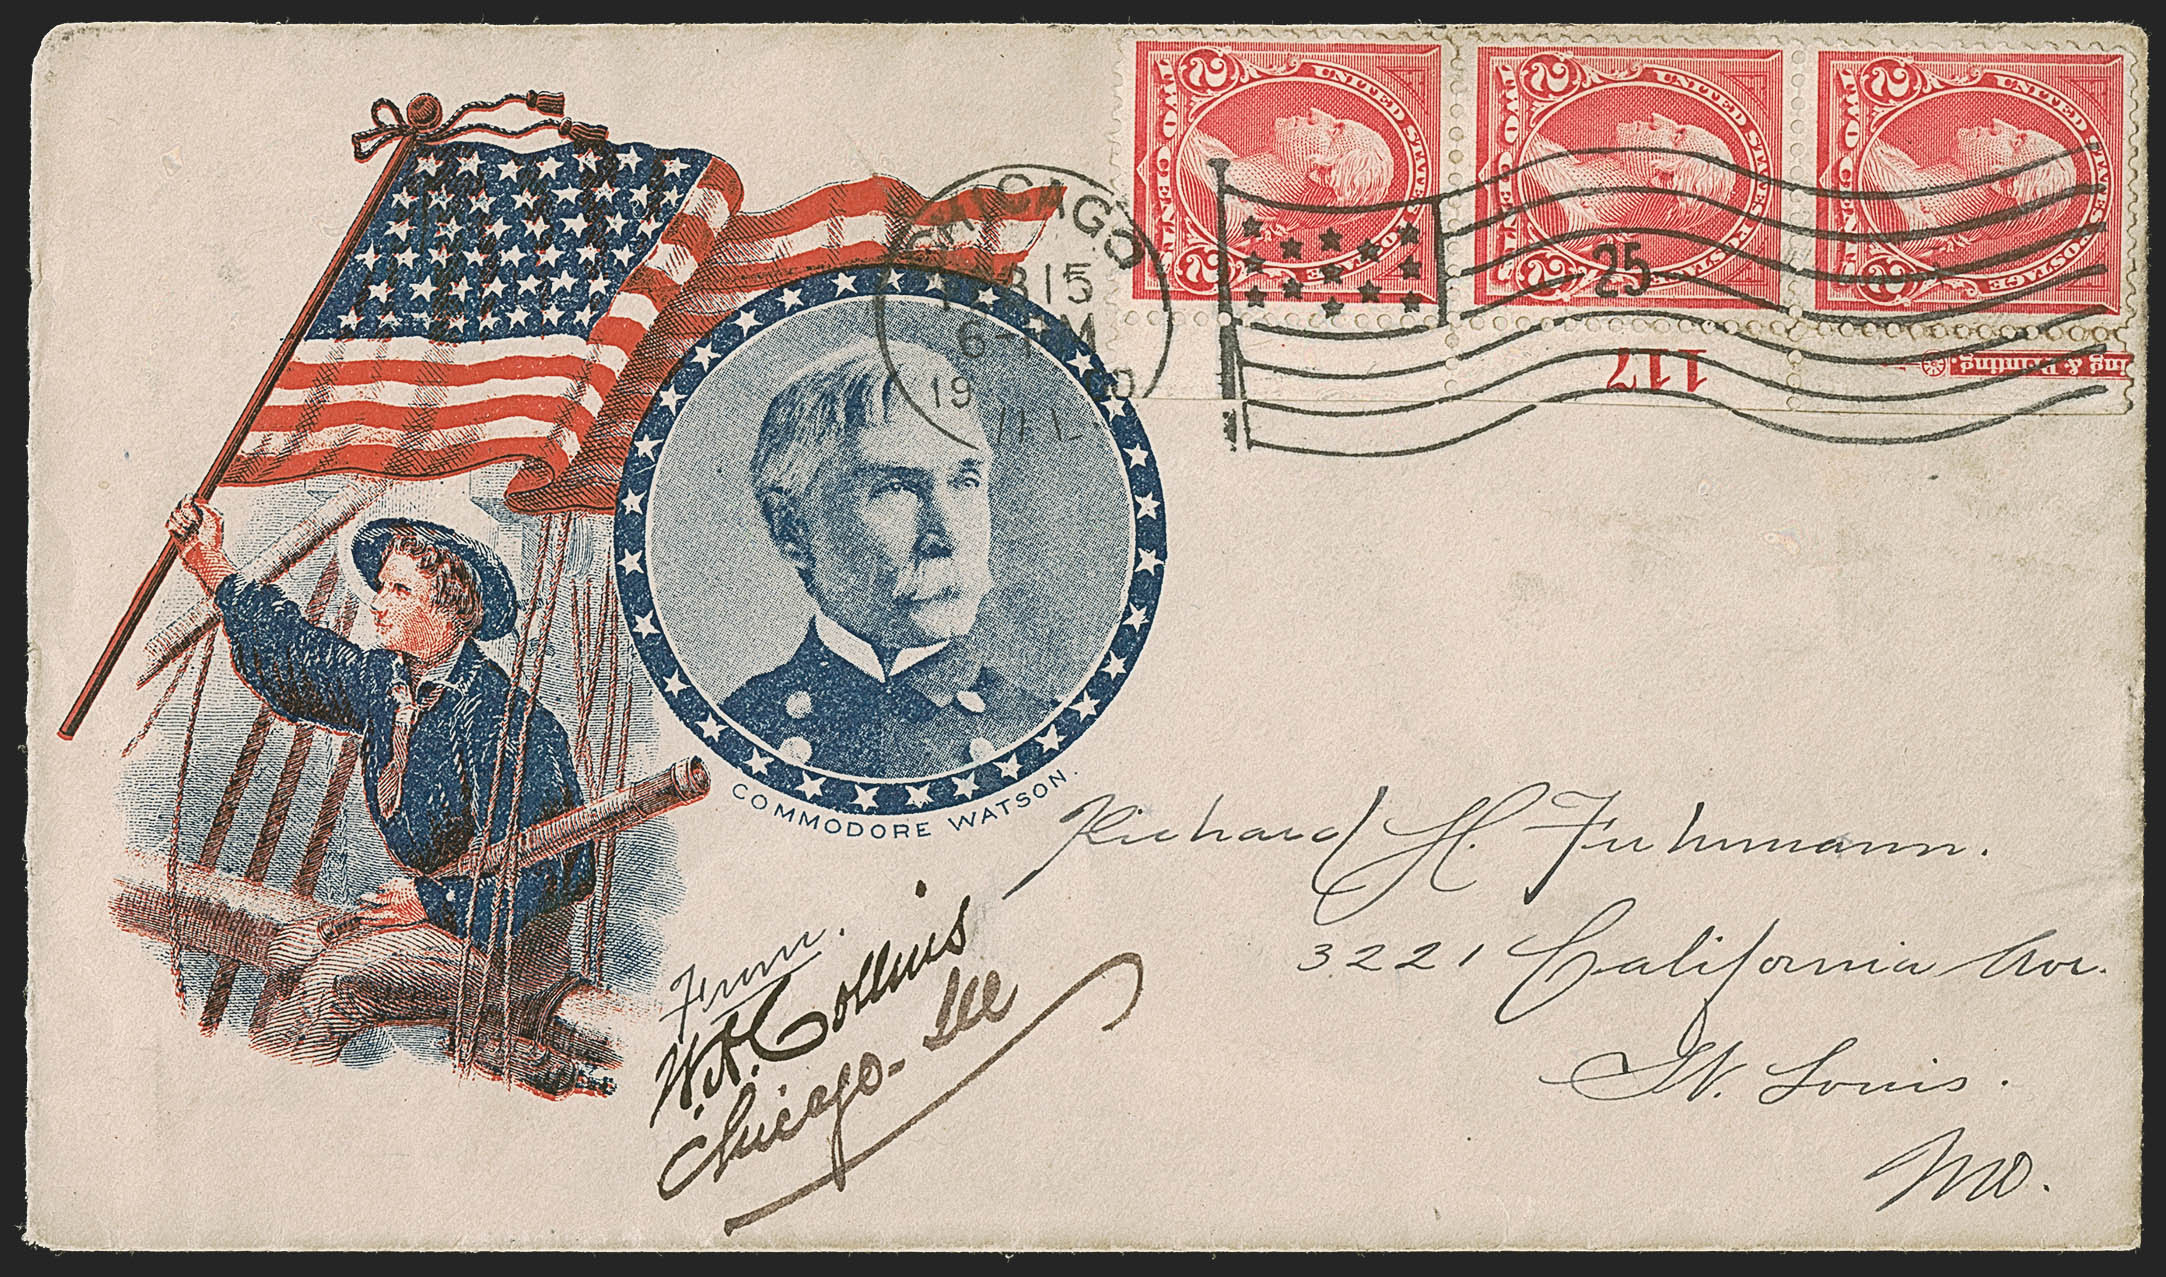 UNITED STATES POSTAGE
TWO CENTS
2 2
UNITED STATES POSTAGE
TWO CENTS
2 2
UNITED STATES POSTAGE
TWO CENTS
2 2
CHICAGO
15
6- PM
19 00
ILL
25
117
ing & Printing.
COMMODORE WATSON.
Richard H. Fuhrmann.
3221 California Ave.
St. Louis.
Mo.
From.
W.A. Collins
Chicago- Ill